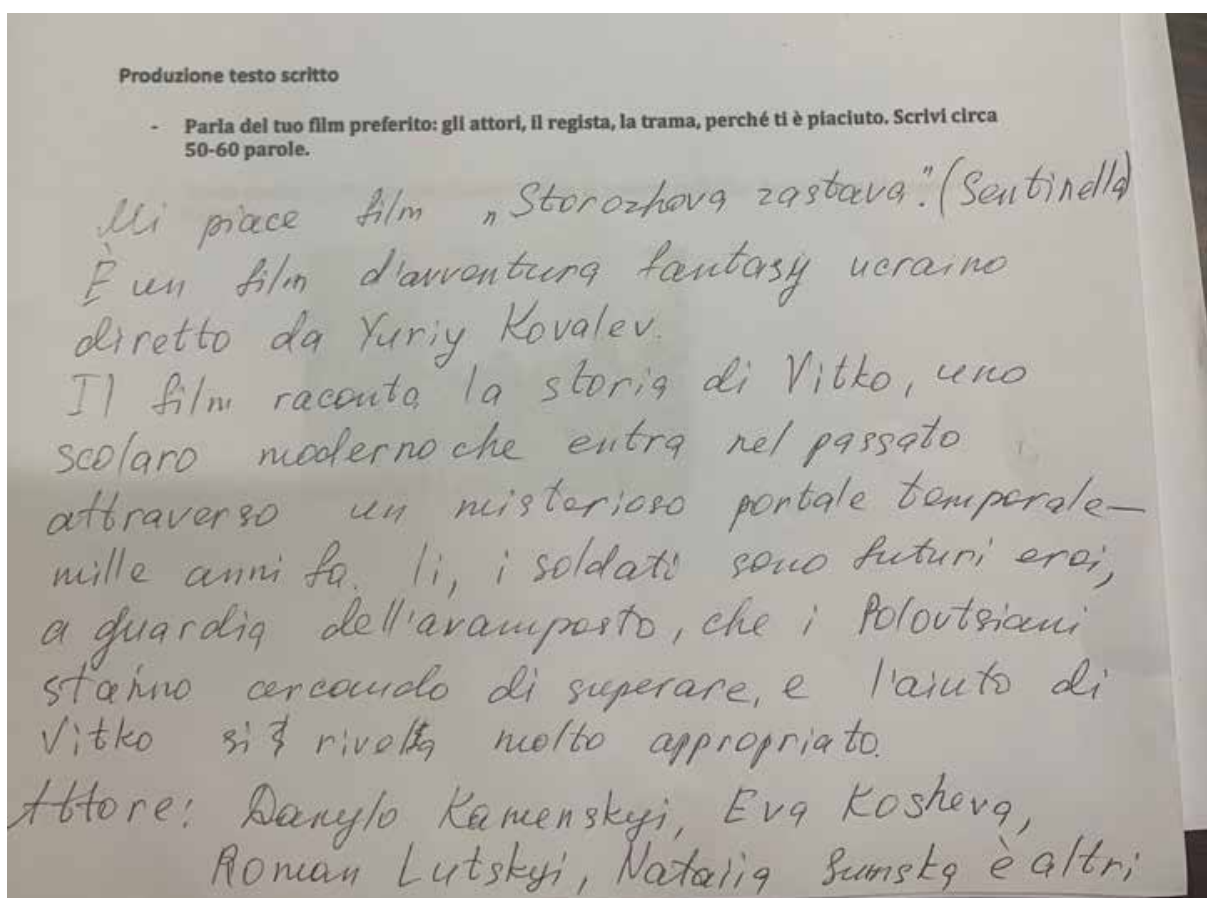 Produzione testo scritto
- Parla del tuo film preferito: gli attori, il regista, la trama, perché ti è piaciuto. Scrivi circa
50-60 parole.
Mi piace film „Storozhova zastava". (Sentinella)
È un film d'avventura fantasy ucraino
diretto da Yuriy Kovalev.
Il film raconta la storia di Vitko, uno
scolaro moderno che entra nel passato
attraverso un misterioso portale temporale—
mille anni fa. li, i soldati sono futuri eroi,
a guardia dell'avamposto, che i Poloutsiani
stanno cercando di superare, e l'aiuto di
Vitko si rivolta molto appropriato.
Attore: Danylo Kamenskyi, Eva Kosheva,
Roman Lutskyi, Natalia Sumska è altri